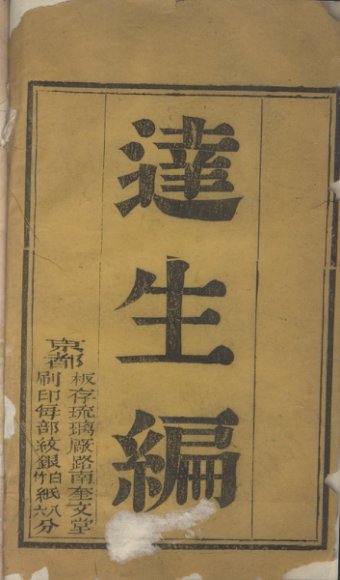 達生編
京都
板存琉璃厰路南奎文堂
刷印每部紋銀白紙八分
竹 六